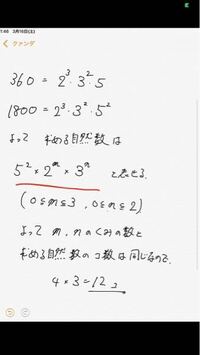 1:46 3月16日(土)
クァンダ
360 = 2³・3²・5
1800 = 2³・3²・5²
よって 求める自然数は
5² × 2ᵐ × 3ⁿ と表せる.
(0≦m≦3, 0≦n≦2)
よって m, nのくみの数と
求める自然数のコ数は同じなので.
4×3=12コ